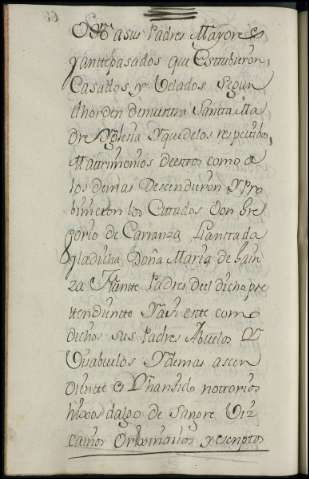 a sus Padres Mayores
y antepasados que Estubieron
Casados y Velados Segun
el horden de nuestra Santa Ma
dre Yglesia Y que de los respectibos
Matrimonios de estos como a
los demas Descendieron Y Pro
binieron los Citados Don Gre
gorio de Carranza
y la dicha Doña Maria de
za Padres del dicho pre
tendiente Y asi este como
dichos sus Padres Abuelos
Visabuelos Y demas ascen
dientes han sido nottorios
hixos dalgo de Sangre Viz
cainos Orixinarios y escriptos